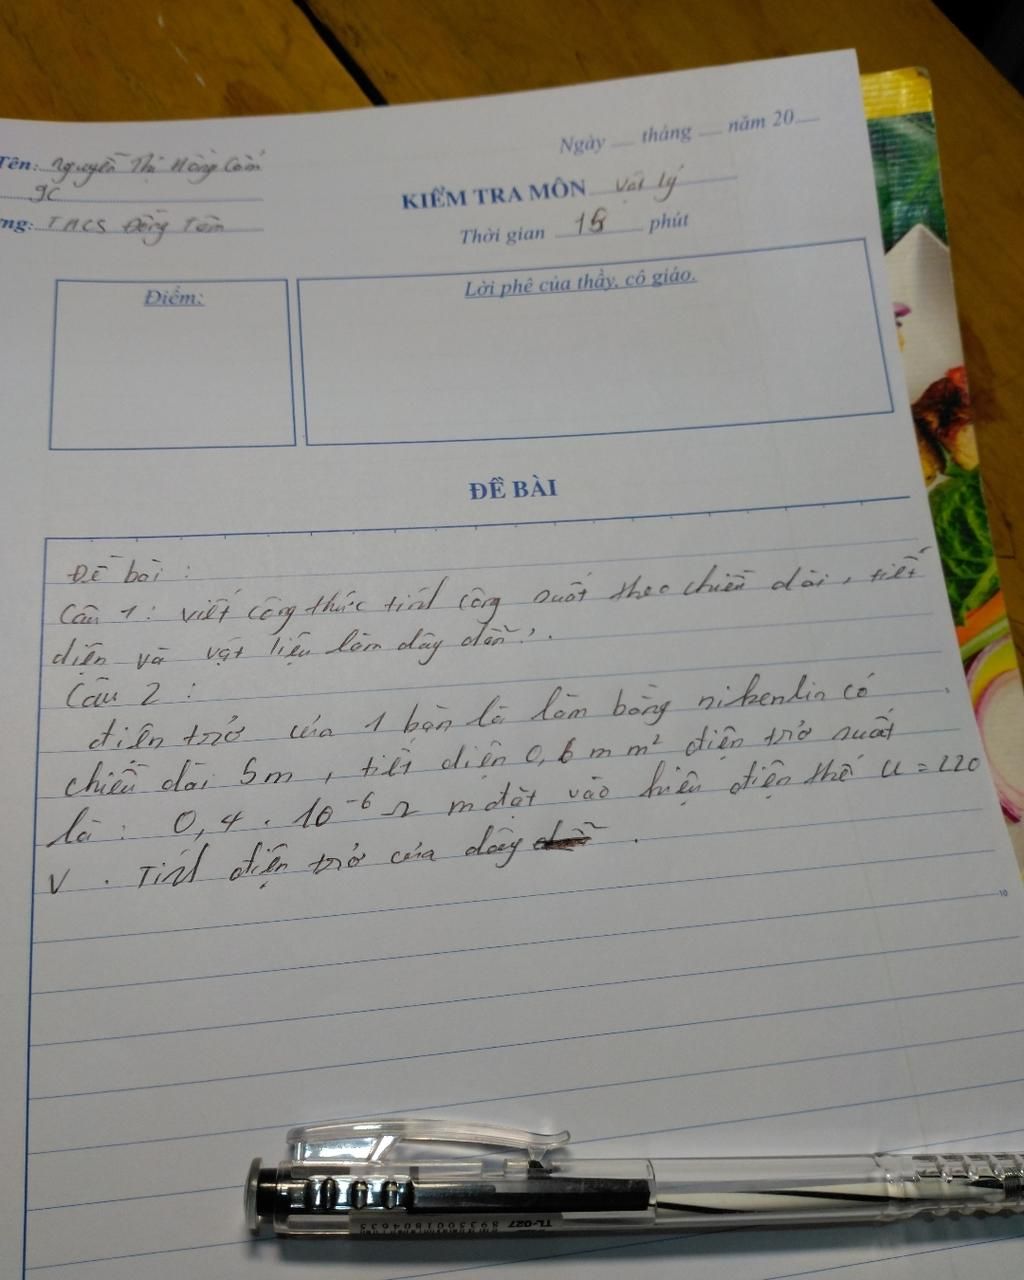 Ngày ... tháng ... năm 20...
Tên: Nguyễn Thị Hồng Cẩm
9C
KIỂM TRA MÔN Vật lý
ng: THCS Đồng Tâm
Thời gian 15 phút
Điểm:
Lời phê của thầy, cô giáo.
ĐỀ BÀI
Đề bài :
Câu 1 : viết công thức tính công suất theo chiều dài, tiết
diện và vật liệu làm dây dẫn ?.
Câu 2 :
điện trở của 1 bàn là làm bằng nikenlin có
chiều dài 5m , tiết diện 0,6 mm² điện trở suất
là : 0,4 . 10⁻⁶ Ω m đặt vào hiệu điện thế U = 220
V . Tính điện trở của dây .
10
TL-027
8935001804635